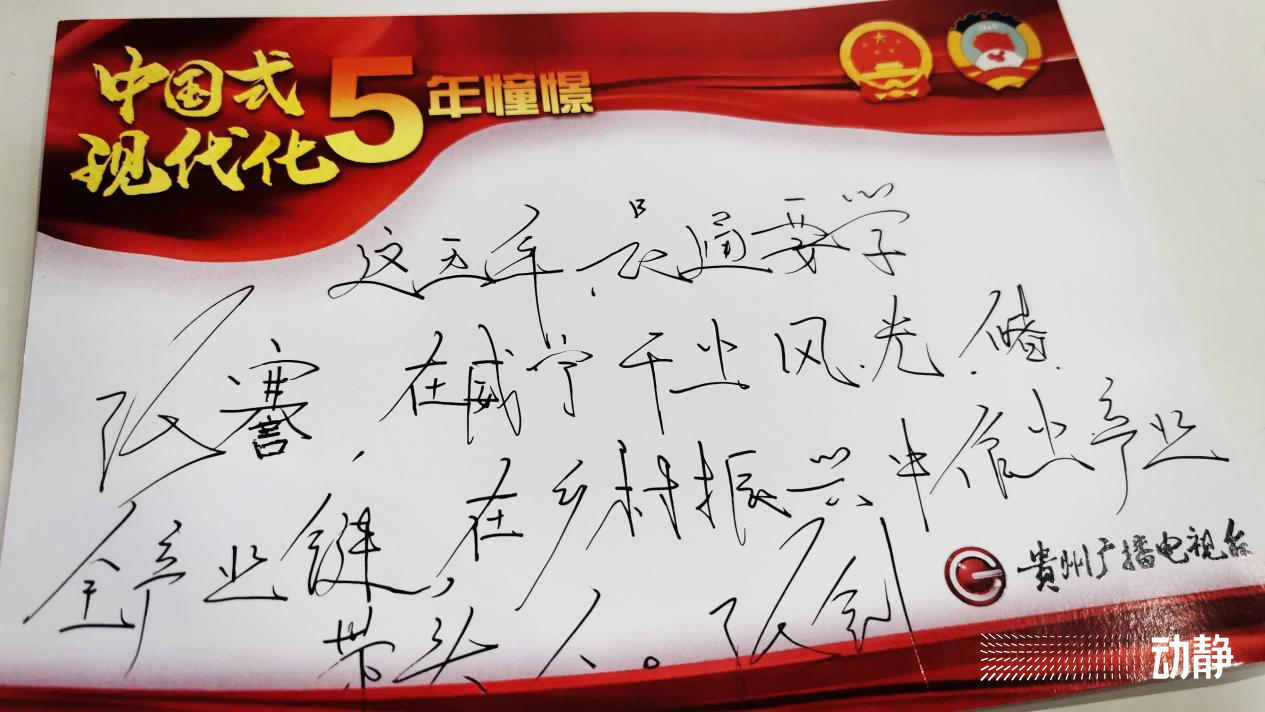 中国式
现代化5年憧憬
这五年,晨通要学
张謇,在威宁干出风.光.储.
全产业链,在乡村振兴中做出产业
带头人。张剑
贵州广播电视台
动静